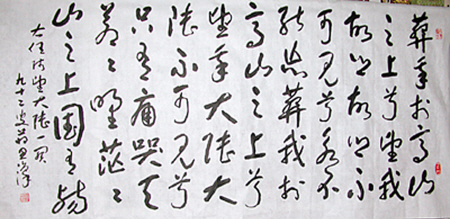 葬我於高山
之上兮望我
故鄉故鄉不
可見兮永不
能忘葬我於
高山之上兮
望我大陸大
陸不可見兮
只有痛哭天
蒼々野茫々
山之上國有殤
右任詩望大陸
九十二叟